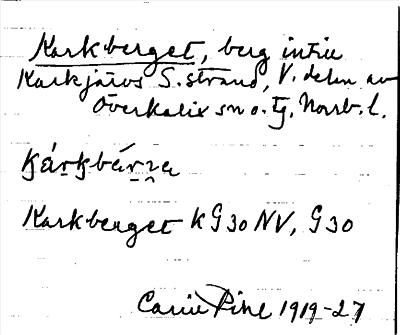 Karkberget, berg intill
Karkjärvs S. strand, V. delen av
Överkalix sn o. tg, Norrb. l.
ḵárḵbárza
Karkberget K G30 NV, G30
Carin Pihl 1919-27